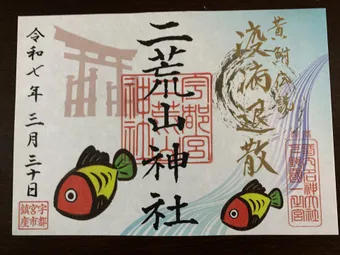 黄鮒伝説
疫病退散
二荒山神社
宇都宮
二荒山
神社
令和七年三月三十日
宇都
宮市
鎮座